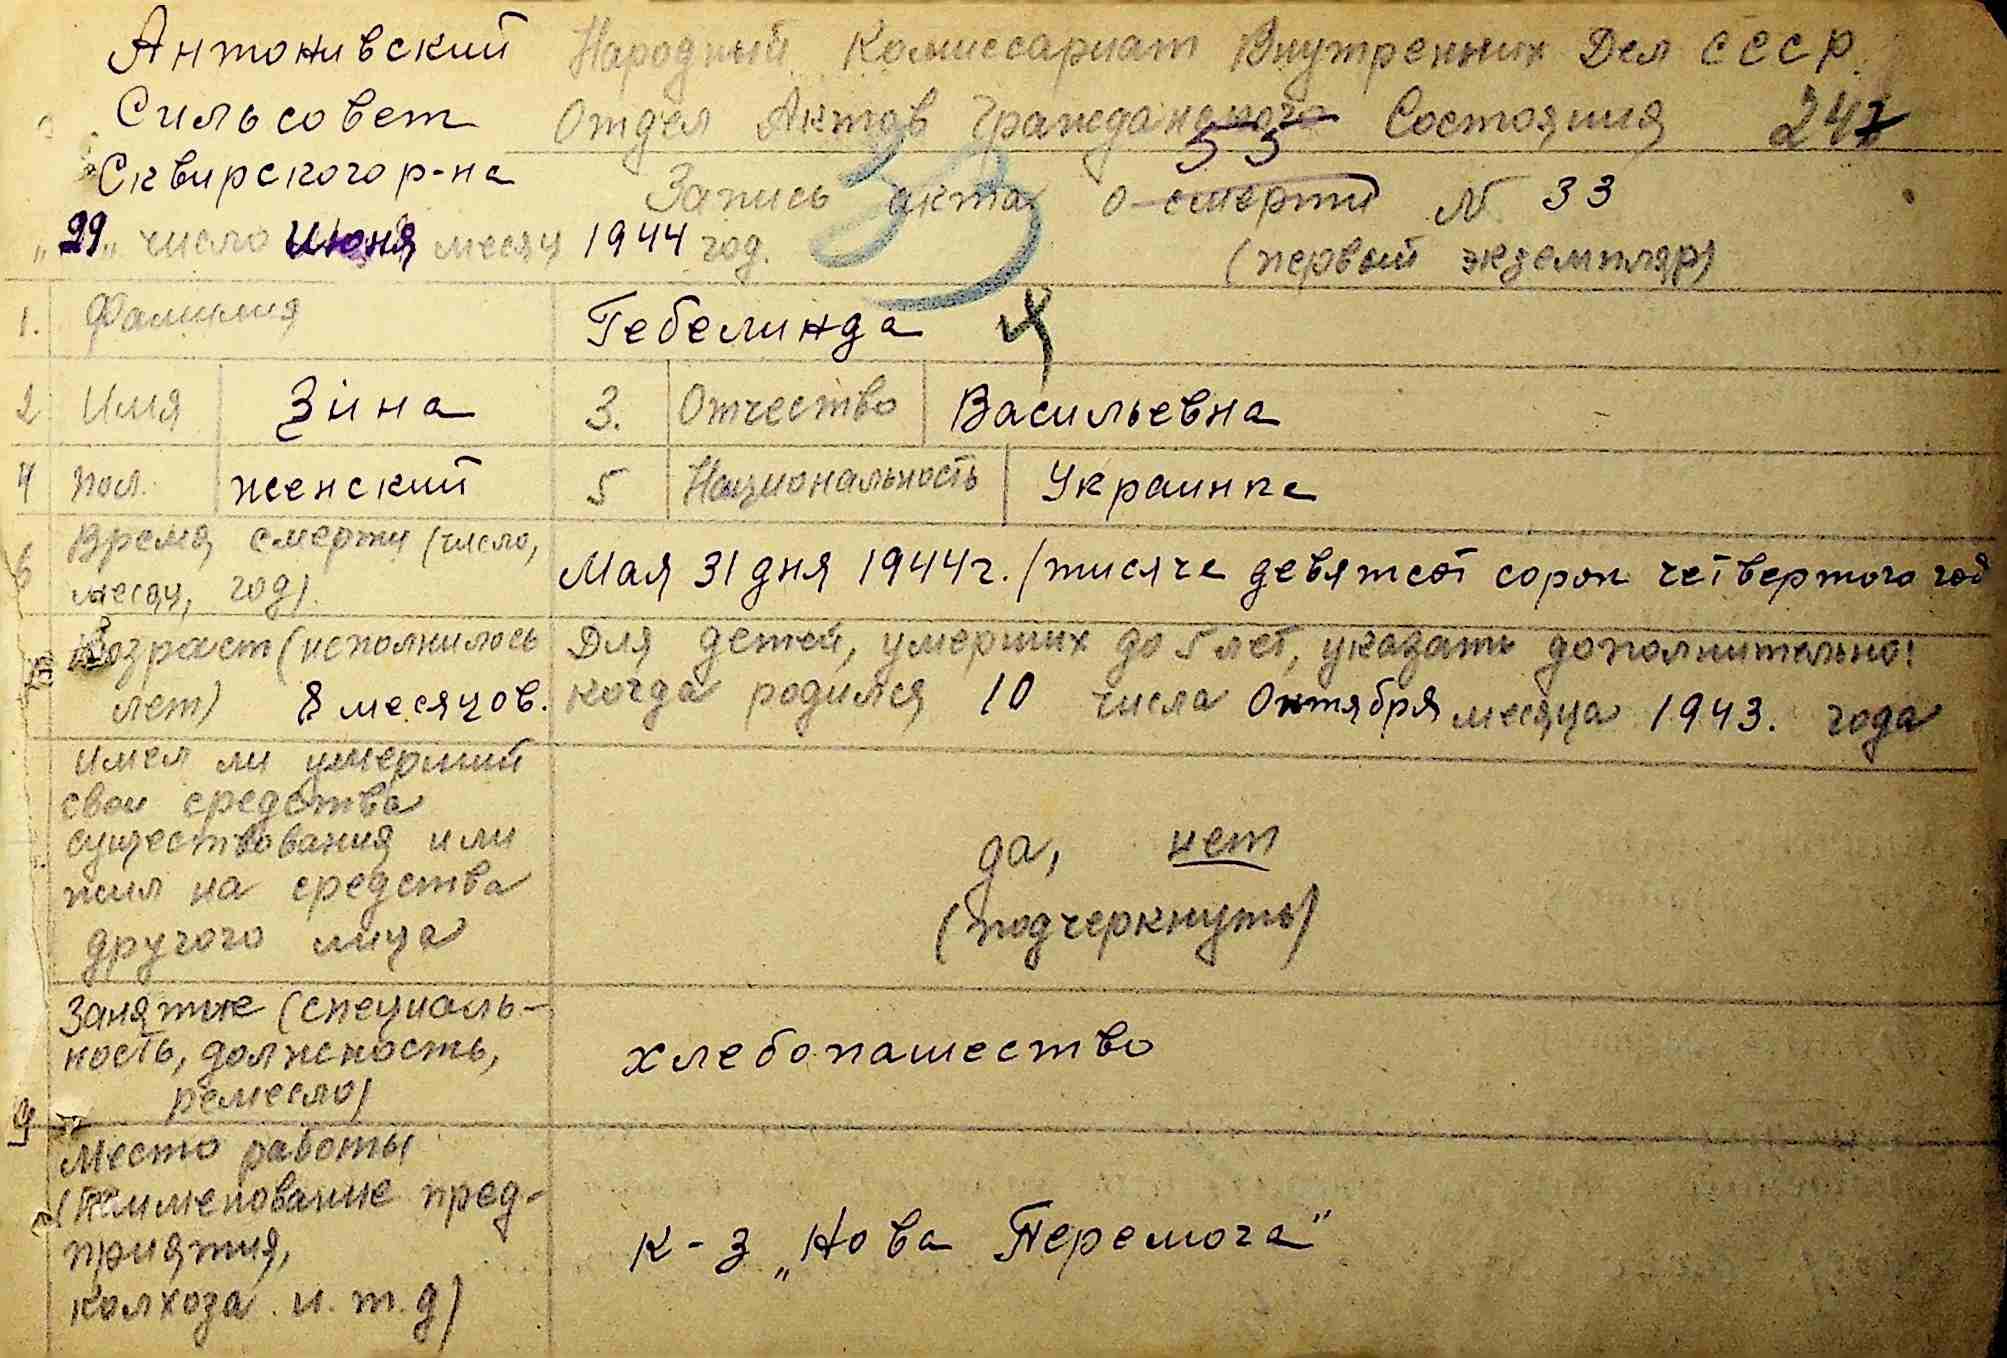 Антонивский
Сильсовет
Сквирского р-на
Народный Комиссариат Внутренних Дел СССР.
Отдел Актов Гражданского Состояния 247
55
33
Запись акта о смерти N 33
(первый экземпляр)
"29" число Июня месяц 1944 год.
1. Фамилия Гебелинда
2 Имя Зіна 3. Отчество Васильевна
4 Пол. женский 5 Национальность Украинка
6 Время смерти (число, месяц, год). Мая 31 дня 1944 г. (тисяче девятсот сорок четвертого год
Возраст (исполнилось
лет) 8 месяцов.
Для детей, умерших до 5 лет, указать дополнительно:
когда родился 10 числа Октября месяца 1943. года
Имел ли умерший
свои средства
существования или
жил на средства
другого лица
да, нет
(подчеркнуть)
Занятие (специаль-
ность, должность,
ремесло)
хлебопашество
9
Место работы
(наименование пред-
приятия,
колхоза и. т. д)
к-з „Нова Перемога"